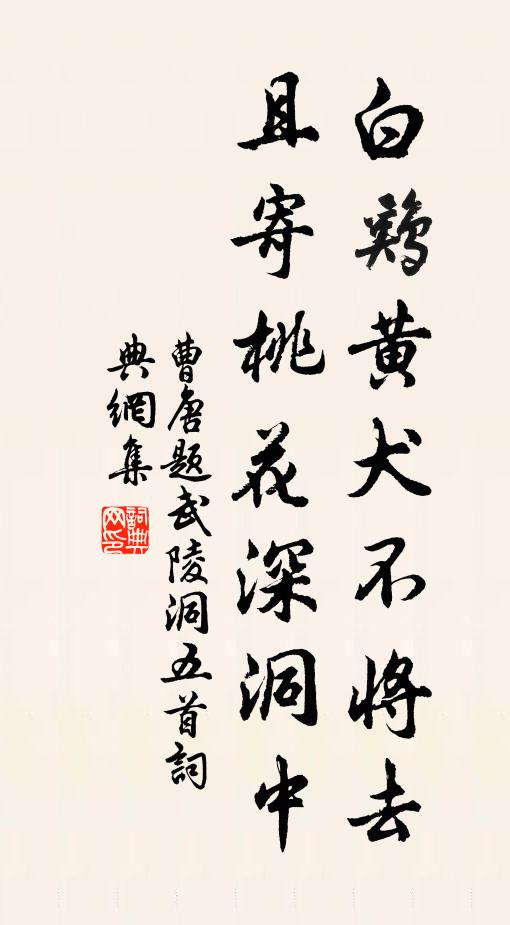 白鷄黄犬不將去
且寄桃花深洞中
曹唐題武陵洞五首詞
典網集
詞典
网印